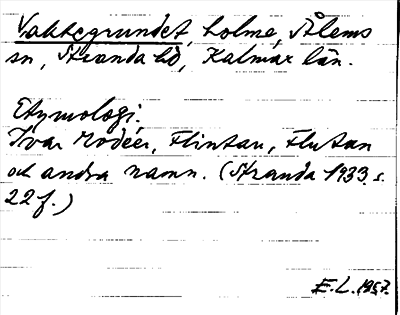 Vaktegrundet, holme, Ålems
sn, Stranda hd, Kalmar län.
Etymologi.
Ivar Modéer, Flintan, Flutan
och andra namn. (Stranda 1933 s.
22 f.)
E. L. 1957.